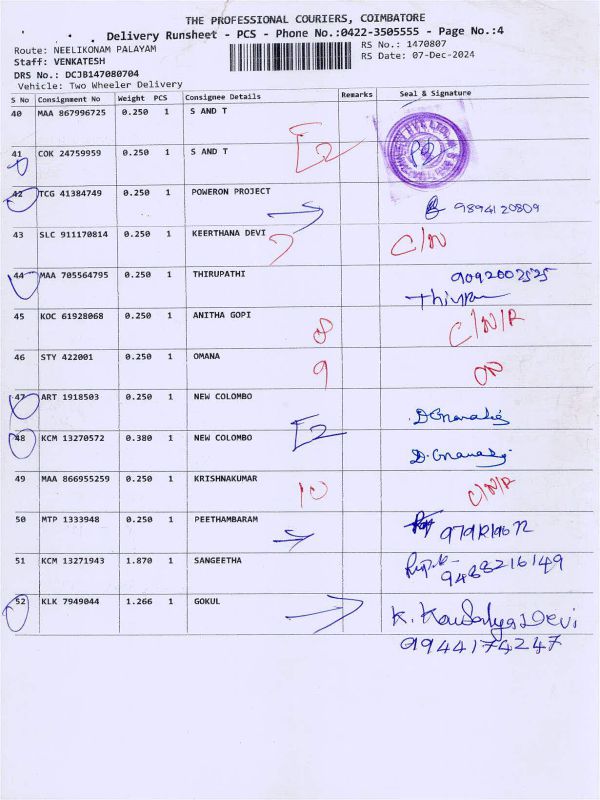 THE PROFESSIONAL COURIERS, COIMBATORE
Delivery Runsheet - PCS - Phone No.:0422-3505555 - Page No.:4
Route: NEELIKONAM PALAYAM RS No.: 1470807
Staff: VENKATESH RS Date: 07-Dec-2024
DRS No.: DCJB147080704
Vehicle: Two Wheeler Delivery
S No Consignment No Weight PCS Consignee Details Remarks Seal & Signature
40 MAA 867996725 0.250 1 S AND T
41 COK 24759959 0.250 1 S AND T
42 TCG 41384749 0.250 1 POWERON PROJECT 9894120809
43 SLC 911170814 0.250 1 KEERTHANA DEVI 7 C/N
44 MAA 705564795 0.250 1 THIRUPATHI 9092002525
45 KOC 61928068 0.250 1 ANITHA GOPI 8 C/N/R
46 STY 422001 0.250 1 OMANA 9 ON
47 ART 1918503 0.250 1 NEW COLOMBO
48 KCM 13270572 0.380 1 NEW COLOMBO
49 MAA 866955259 0.250 1 KRISHNAKUMAR 10 C/N/R
50 MTP 1333948 0.250 1 PEETHAMBARAM
51 KCM 13271943 1.870 1 SANGEETHA 9488216149
52 KLK 7949044 1.266 1 GOKUL K. Kousalya Devi
9944174247